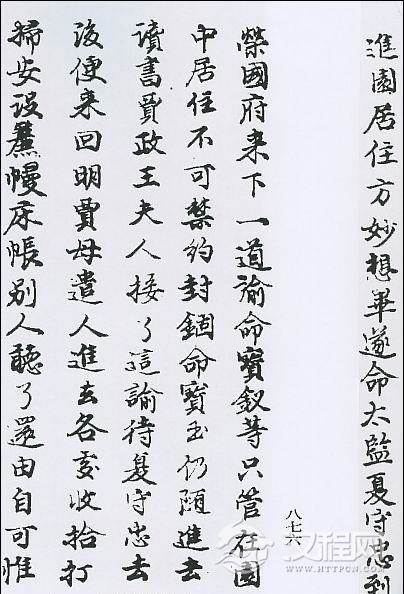 進園居住方妙想畢遂命太監夏守忠到
榮國府来下一道諭命寳釵等只管在園
中居住不可禁約封錮命寳玉仍随進去
讀書賈政王夫人接了這諭待夏守忠去
後便来回明賈母遣人進去各處收拾打
掃安設簾幔床帳别人聽了還由自可惟
八七六
汉程网
WWW.HTTPCN.COM